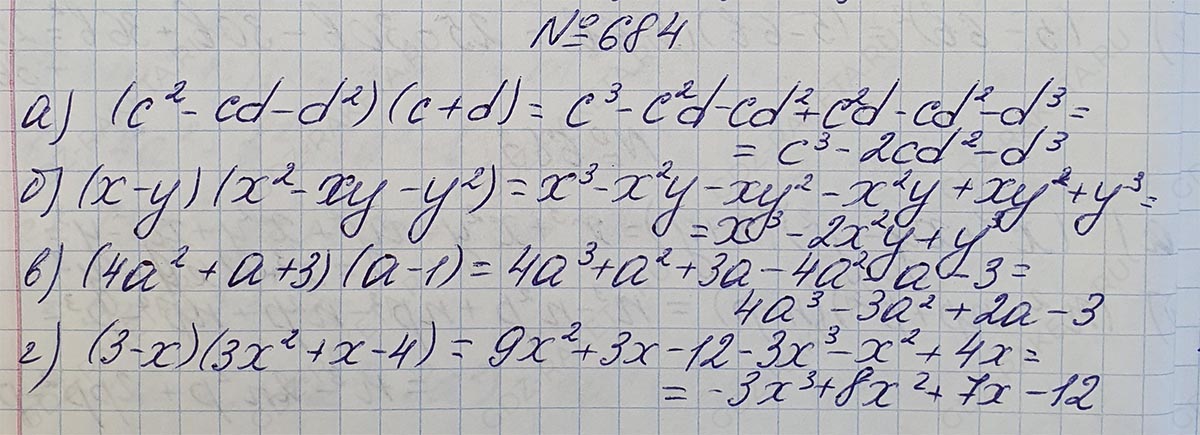 №684
а) (c² - cd - d²)(c + d) = c³ - c²d - cd² + c²d - cd² - d³ =
= c³ - 2cd² - d³
б) (x - y)(x² - xy - y²) = x³ - x²y - xy² - x²y + xy² + y³ =
= x³ - 2x²y + y³
в) (4a² + a + 3)(a - 1) = 4a³ + a² + 3a - 4a² - a - 3 =
4a³ - 3a² + 2a - 3
г) (3 - x)(3x² + x - 4) = 9x² + 3x - 12 - 3x³ - x² + 4x =
= -3x³ + 8x² + 7x - 12